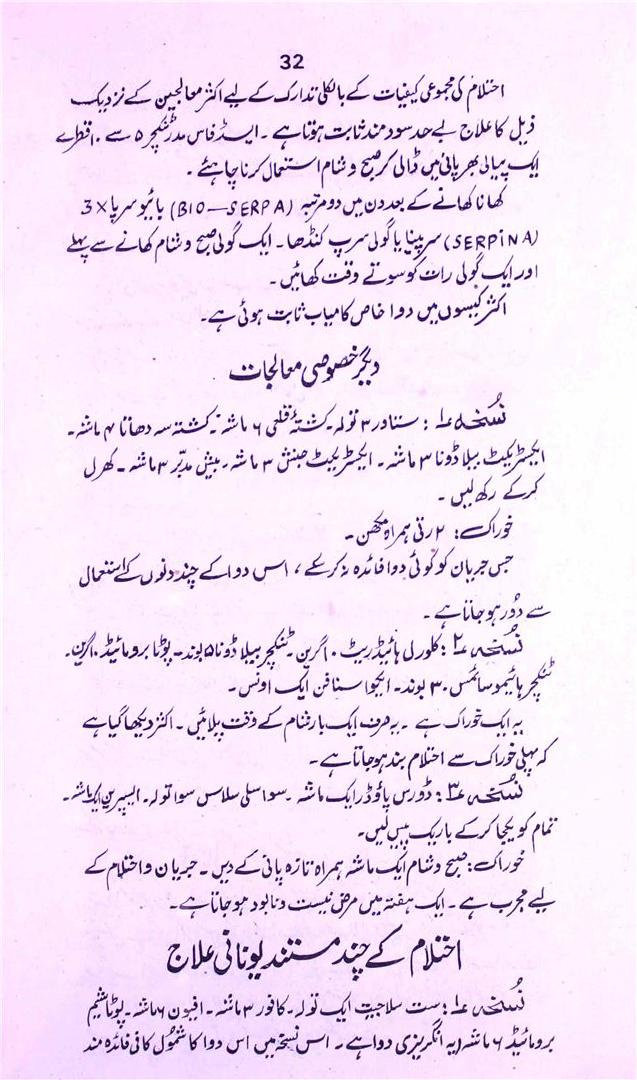 32
احتلام کی مجموعی کیفیات کے بالکلی تدارک کے لیے اکثر معالجین کے نزدیک
ذیل کا علاج بے حد سود مند ثابت ہوتا ہے۔ ایسڈ فاس مدر ٹنکچر ۵ سے ۱۰ قطرے
ایک پیالی بھر پانی میں ڈال کر صبح و شام استعمال کرنا چاہئے۔
کھانا کھانے کے بعد دن میں دو مرتبہ (BIO—SERPA) بائیو سرپا 3x
(SERPINA) سرپینا یا گولی سرپ گندھا۔ ایک گولی صبح و شام کھانے سے پہلے
اور ایک گولی رات کو سوتے وقت کھائیں۔
اکثر کیسوں میں دوا خاص کامیاب ثابت ہوئی ہے۔
دیگر خصوصی معالجات
نسخہ ۱: ستاور ۳ تولہ۔ کشتۂ قلعی ۶ ماشہ۔ کشتہ سہ دھاتا ۴ ماشہ۔
ایکسٹریکٹ بیلاڈونا ۳ ماشہ۔ ایکسٹریکٹ جنشن ۳ ماشہ۔ بیش مدبّر ۳ ماشہ۔ کھرل
کر کے رکھ لیں۔
خوراک: ۲ رتی ہمراہ مکھن۔
جس جریان کو کوئی دوا فائدہ نہ کر سکے، اس دوا کے چند دنوں کے استعمال
سے دُور ہو جاتا ہے۔
نسخہ ۲: کلورل ہائیڈریٹ ۱۰ گرین۔ ٹنکچر بیلا ڈونا ۵ بوند۔ پوٹا برومائیڈ ۱۰ گرین۔
ٹنکچر ہائیموسائمس ۳۰ بوند۔ ایکوا سنافن ایک اونس۔
یہ ایک خوراک ہے۔ صرف ایک بار شام کے وقت پلائیں۔ اکثر دیکھا گیا ہے
کہ پہلی خوراک سے احتلام بند ہو جاتا ہے۔
نسخہ ۳: ڈورس پاؤڈر ایک ماشہ۔ سوا سلی سلاس سوا تولہ۔ ایسپرین ایک ماشہ۔
تمام کو یکجا کر کے باریک پیس لیں۔
خوراک: صبح و شام ایک ماشہ ہمراہ تازہ پانی کے دیں۔ جریان و احتلام کے
لیے مجرب ہے۔ ایک ہفتہ میں مرض نیست و نابود ہو جاتا ہے۔
احتلام کے چند مستند یونانی علاج
نسخہ ۱: ست سلاجیت ایک تولہ۔ کافور ۳ ماشہ۔ افیون ۶ ماشہ۔ پوٹاشیم
برومائیڈ ۶ ماشہ (یہ انگریزی دوا ہے۔ اس نسخہ میں اس دوا کا شمول کافی فائدہ مند